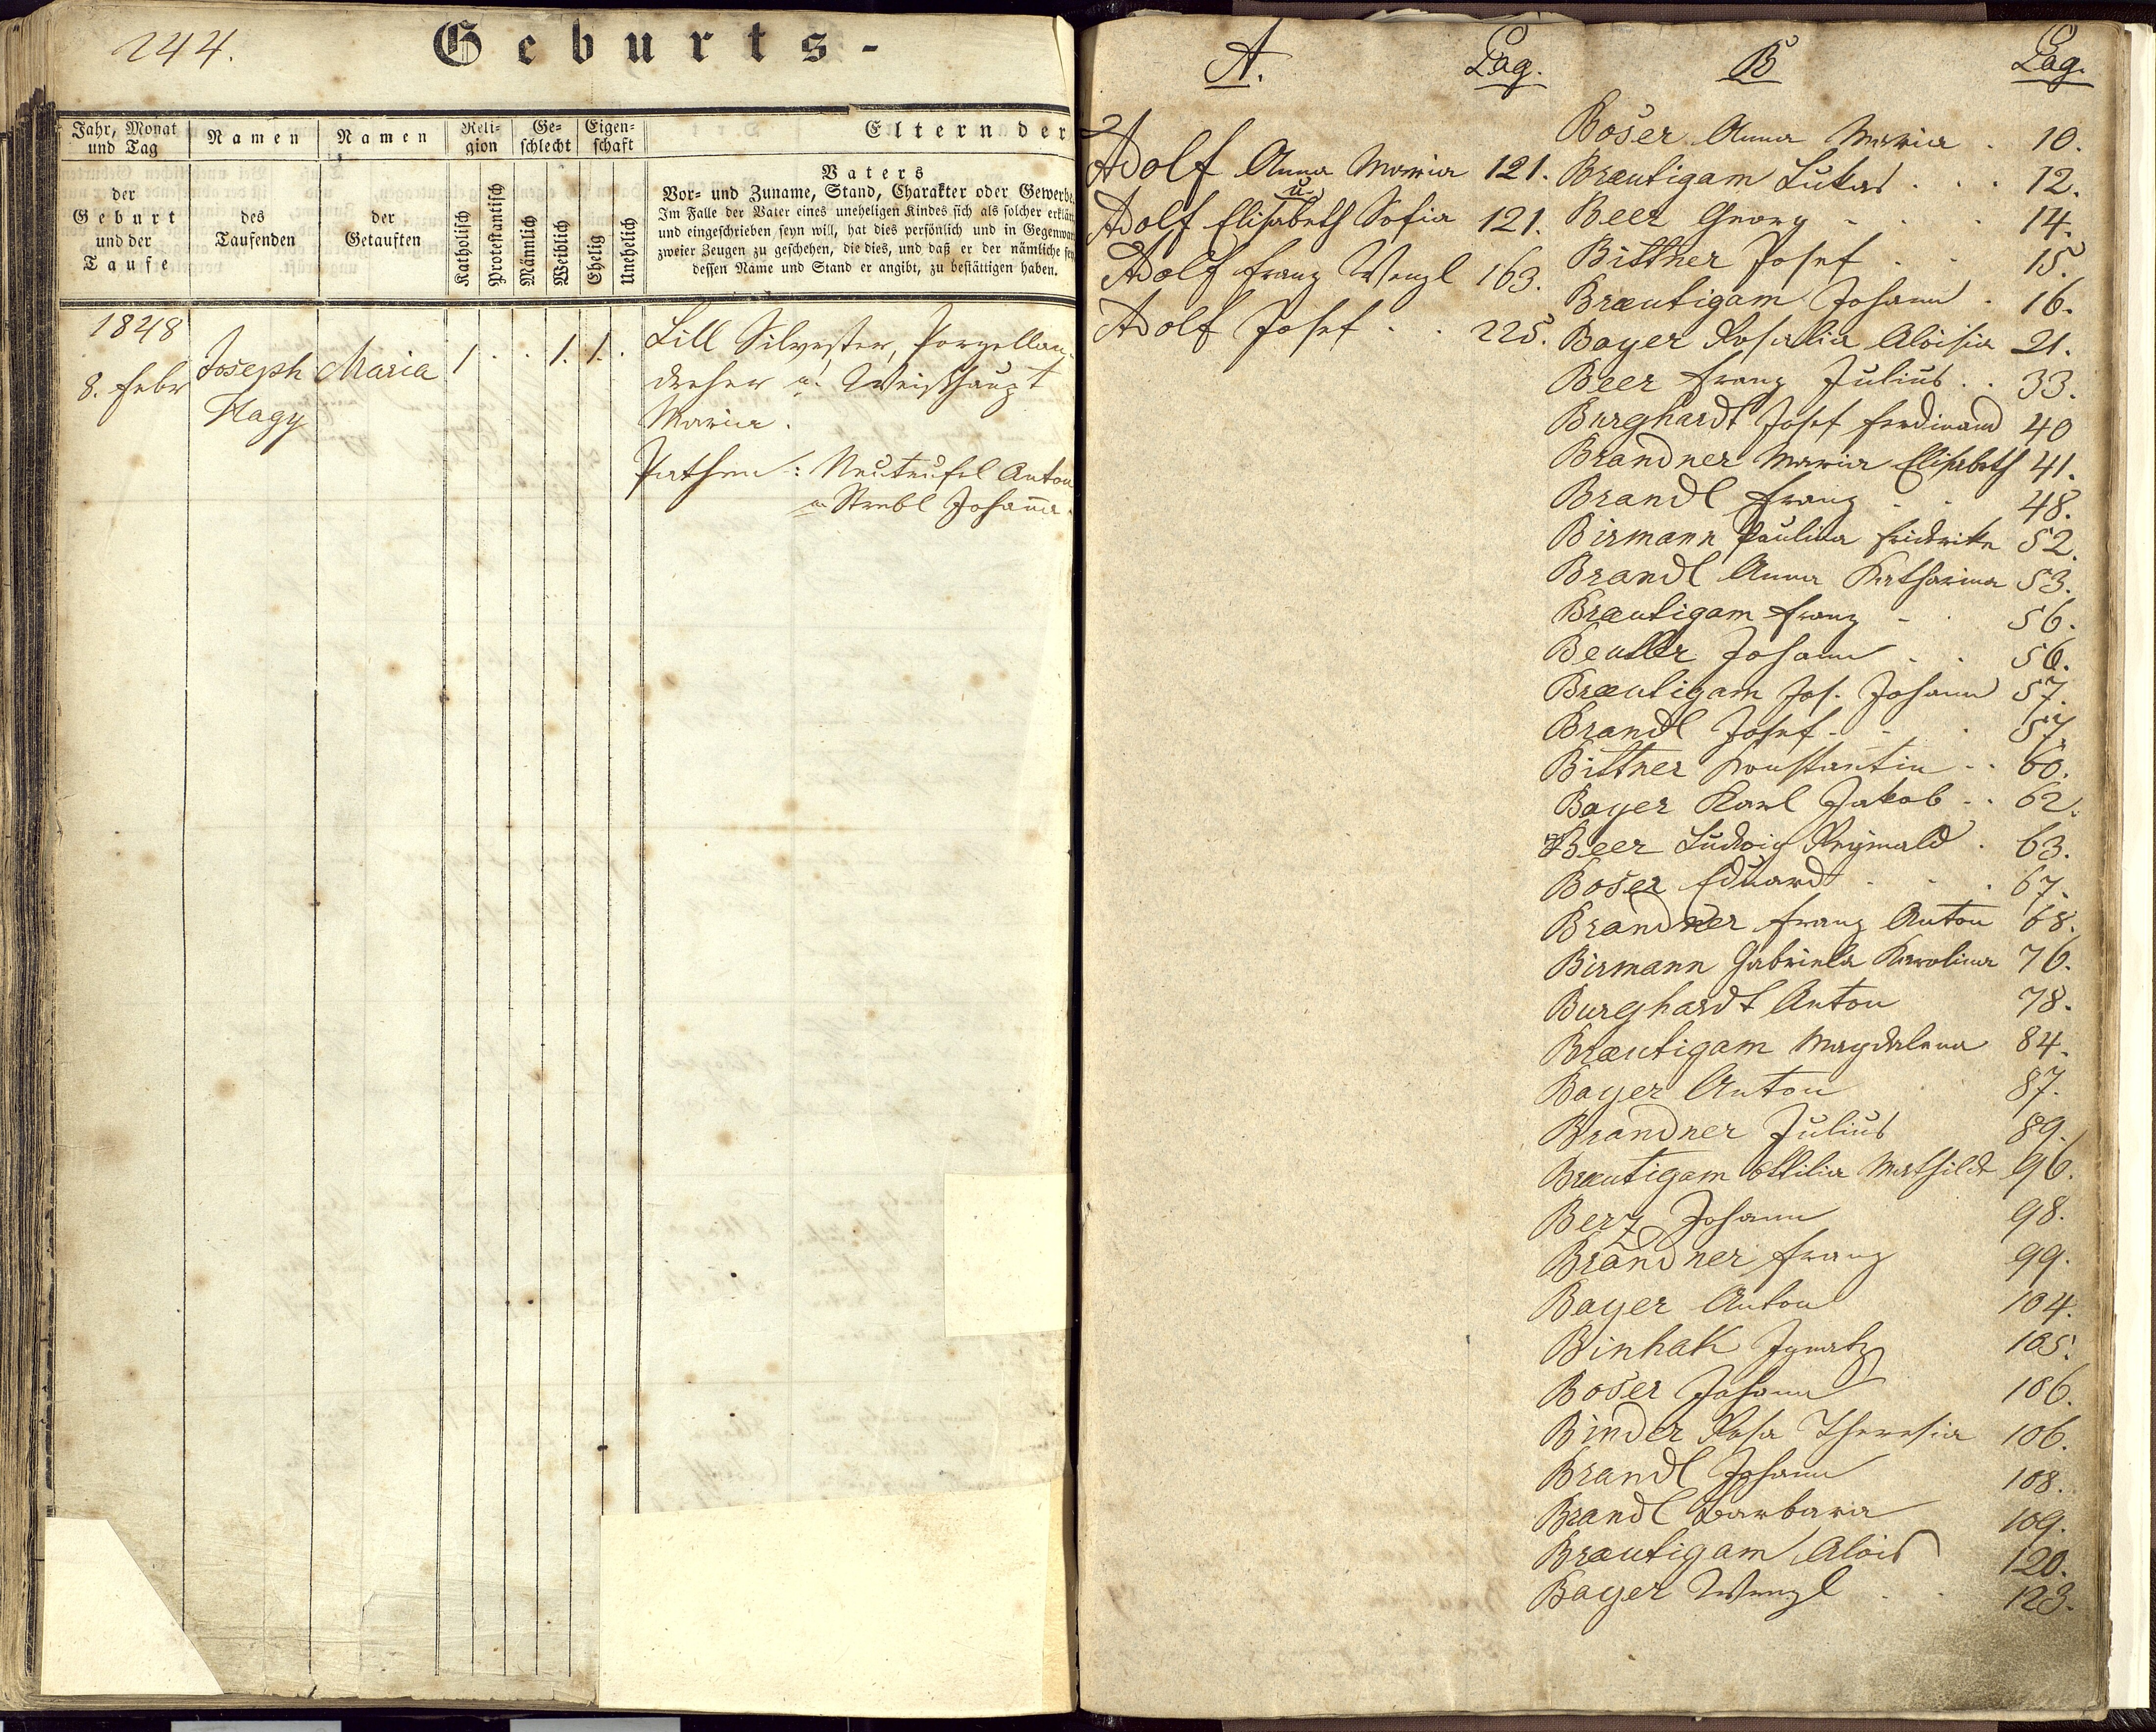 244.
Geburts-
Jahr, Monat und Tag
der Geburt und der Taufe
Namen des Taufenden
Namen der Getauften
Religion
Katholisch
Protestantisch
Geschlecht
Männlich
Weiblich
Eigenschaft
Ehelig
Unehelich
Eltern der
Vaters
Vor- und Zuname, Stand, Charakter oder Gewerbe.
Im Falle der Vater eines uneheligen Kindes sich als solcher erklärt
und eingeschrieben seyn will, hat dies persönlich und in Gegenwart
zweier Zeugen zu geschehen, die dies, und daß er der nämliche sey
dessen Name und Stand er angibt, zu bestättigen haben.
1848
8. Febr
Joseph
Nagy
Maria
1 . . 1. 1. .
Lill Silvester, Porzellan-
dreher u. Weishaupt
Maria.
Pathen: Neuteufel Anton
u Strebl Johanna.
A. Pag.
Adolf Anna Maria 121.
u
Adolf Elisabeth Sofia 121.
Adolf Franz Wenzl 163.
Adolf Josef . . 225.
B Pag.
Boser Anna Maria . 10.
Braeutigam Lukas . . . 12.
Beer Georg - . . 14.
Bittner Josef . . 15.
Braeutigam Johann . 16.
Bayer Rosalia Aloisia 21.
Beer Franz Julius . . 33.
Burghardt Josef Ferdinand 40
Brandner Maria Elisabeth 41.
Brandl Franz . . 48.
Birmann Paulina Fridrike 52.
Brandl Anna Katharina 53.
Braeutigam Franz - . 56.
Beutler Johann . . 56.
Braeutigam Jos. Johann 57.
Brandl Josef - - . 57.
Bittner Konstantin - . 60.
Bayer Karl Jakob - . 62.
Beer Ludwig Reginald . 63.
Boser Eduard - - . 67.
Brandner Franz Anton 68.
Birmann Gabriela Karolina 76.
Burghardt Anton 78.
Braeutigam Magdalena 84.
Bayer Anton 87.
Brandner Julius 89.
Braeutigam Ottilia Mathilde 96.
Berz Johann 98.
Brandner Franz 99.
Bayer Anton 104.
Binhak Ignatz 105.
Boser Johann 106.
Binder Rosa Theresia 106.
Brandl Johann 108.
Brandl Barbara 109.
Braeutigam Alois 120.
Bayer Wenzl . . 123.